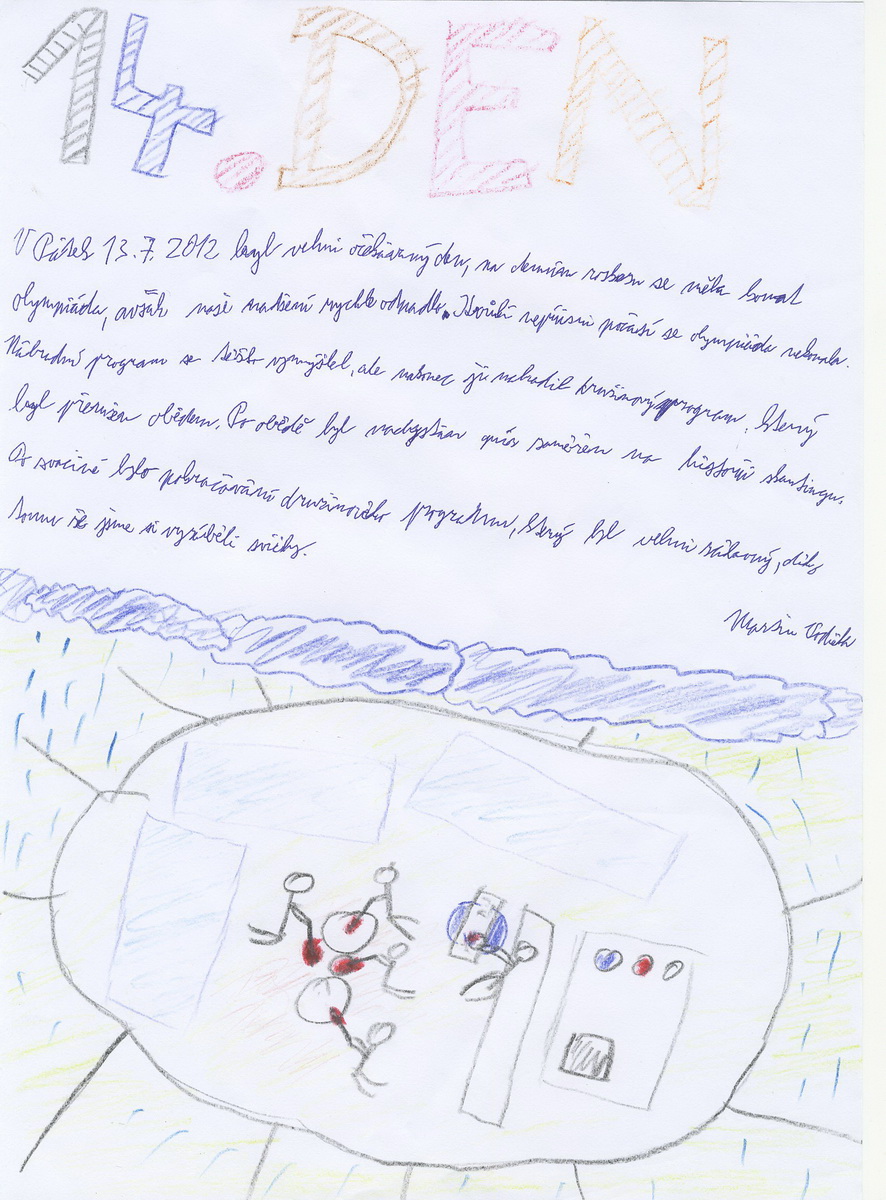 14. DEN
V Pátek 13.7. 2012 byl velmi očekávaný den, na denním rozkazu se měla konat
olympiáda, avšak naše nadšení rychle odpadlo. Kvůli nepřízni počasí se olympiáda nekonala.
Náhradní program se těžko vymýšlel, ale nakonec jej nahradil družinový program, který
byl přerušen obědem. Po obědě byl nachystán quiz zaměřen na historii skautingu.
Po svačině bylo pokračování družinového programu, který byl velmi zábavný, díky
tomu že jsme si vyráběli svíčky.
Martin